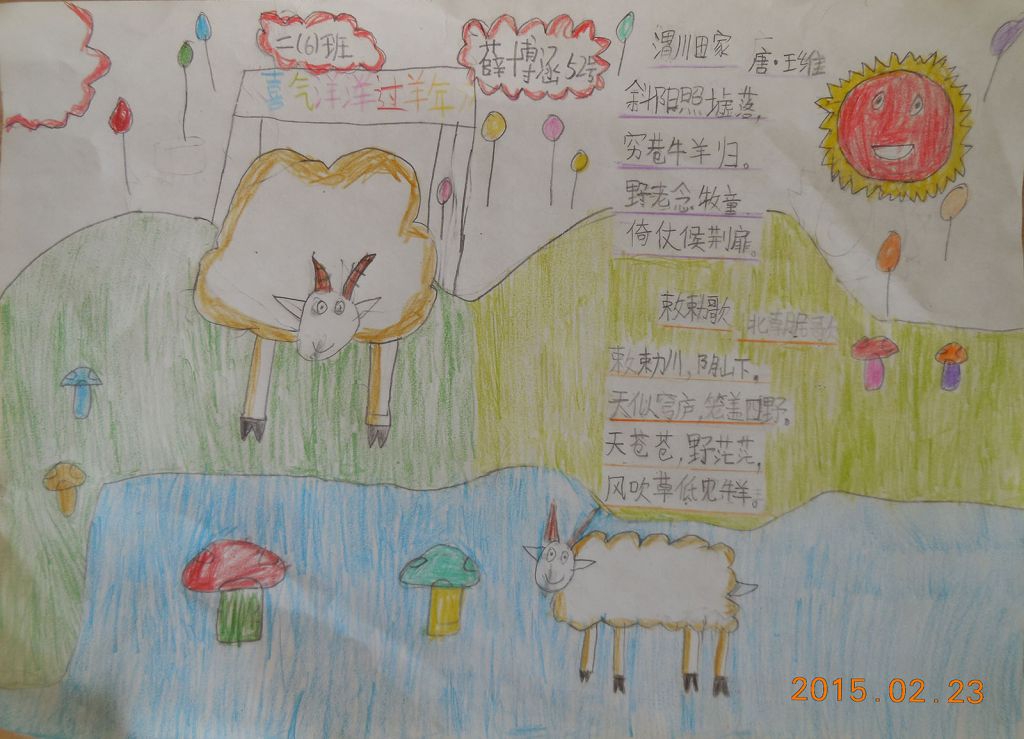 二(6)班
薛博涵 52号
喜气洋洋过羊年
渭川田家 唐·王维
斜阳照墟落,
穷巷牛羊归。
野老念牧童
倚仗候荆扉。
敕勒歌 北朝民歌
敕勒川,阴山下。
天似穹庐,笼盖四野。
天苍苍,野茫茫,
风吹草低见牛羊。
2015.02.23